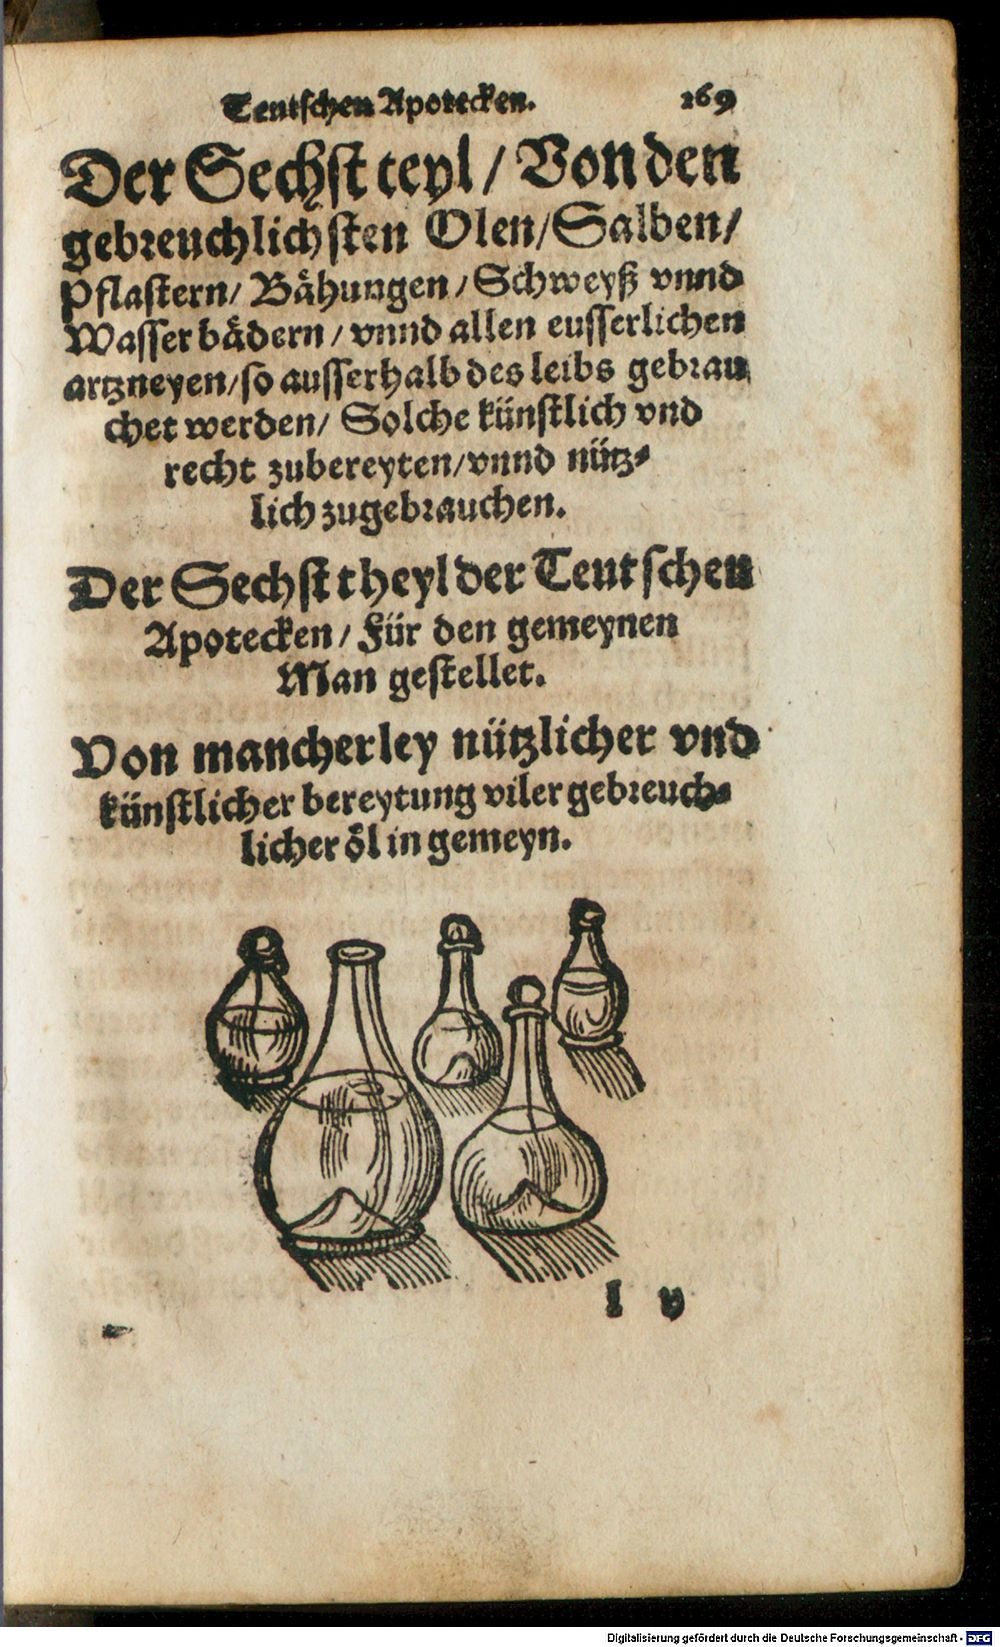 Teutschen Apotecken. 169
Der Sechst teyl / Von den
gebreuchlichsten Olen/ Salben/
Pflastern/ Båhungen / Schweyß vnnd
Wasser bådern / vnnd allen eusserlichen
artzneyen/ so ausserhalb des leibs gebrau
chet werden/ Solche künstlich vnd
recht zubereyten/ vnnd nütz-
lich zugebrauchen.
Der Sechst theyl der Teutschen
Apotecken / Für den gemeynen
Man gestellet.
Von mancherley nützlicher vnd
künstlicher bereytung viler gebreuch-
licher öl in gemeyn.
l v
Digitalisierung gefördert durch die Deutsche Forschungsgemeinschaft - DFG